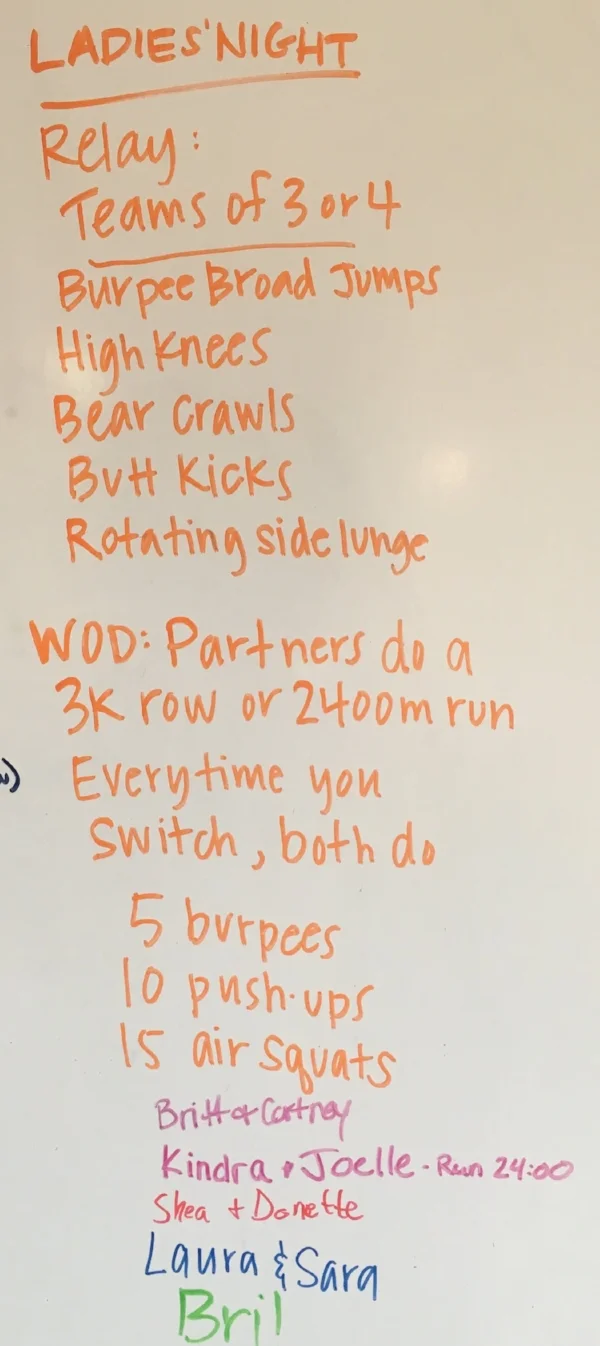 LADIES' NIGHT
Relay:
Teams of 3 or 4
Burpee Broad Jumps
High Knees
Bear Crawls
Butt Kicks
Rotating side lunge
WOD: Partners do a
3K row or 2400m run
Everytime you
switch, both do
5 burpees
10 push-ups
15 air squats
Britt + Cortney
Kindra + Joelle - Run 24:00
Shea + Donette
Laura & Sara
Bril